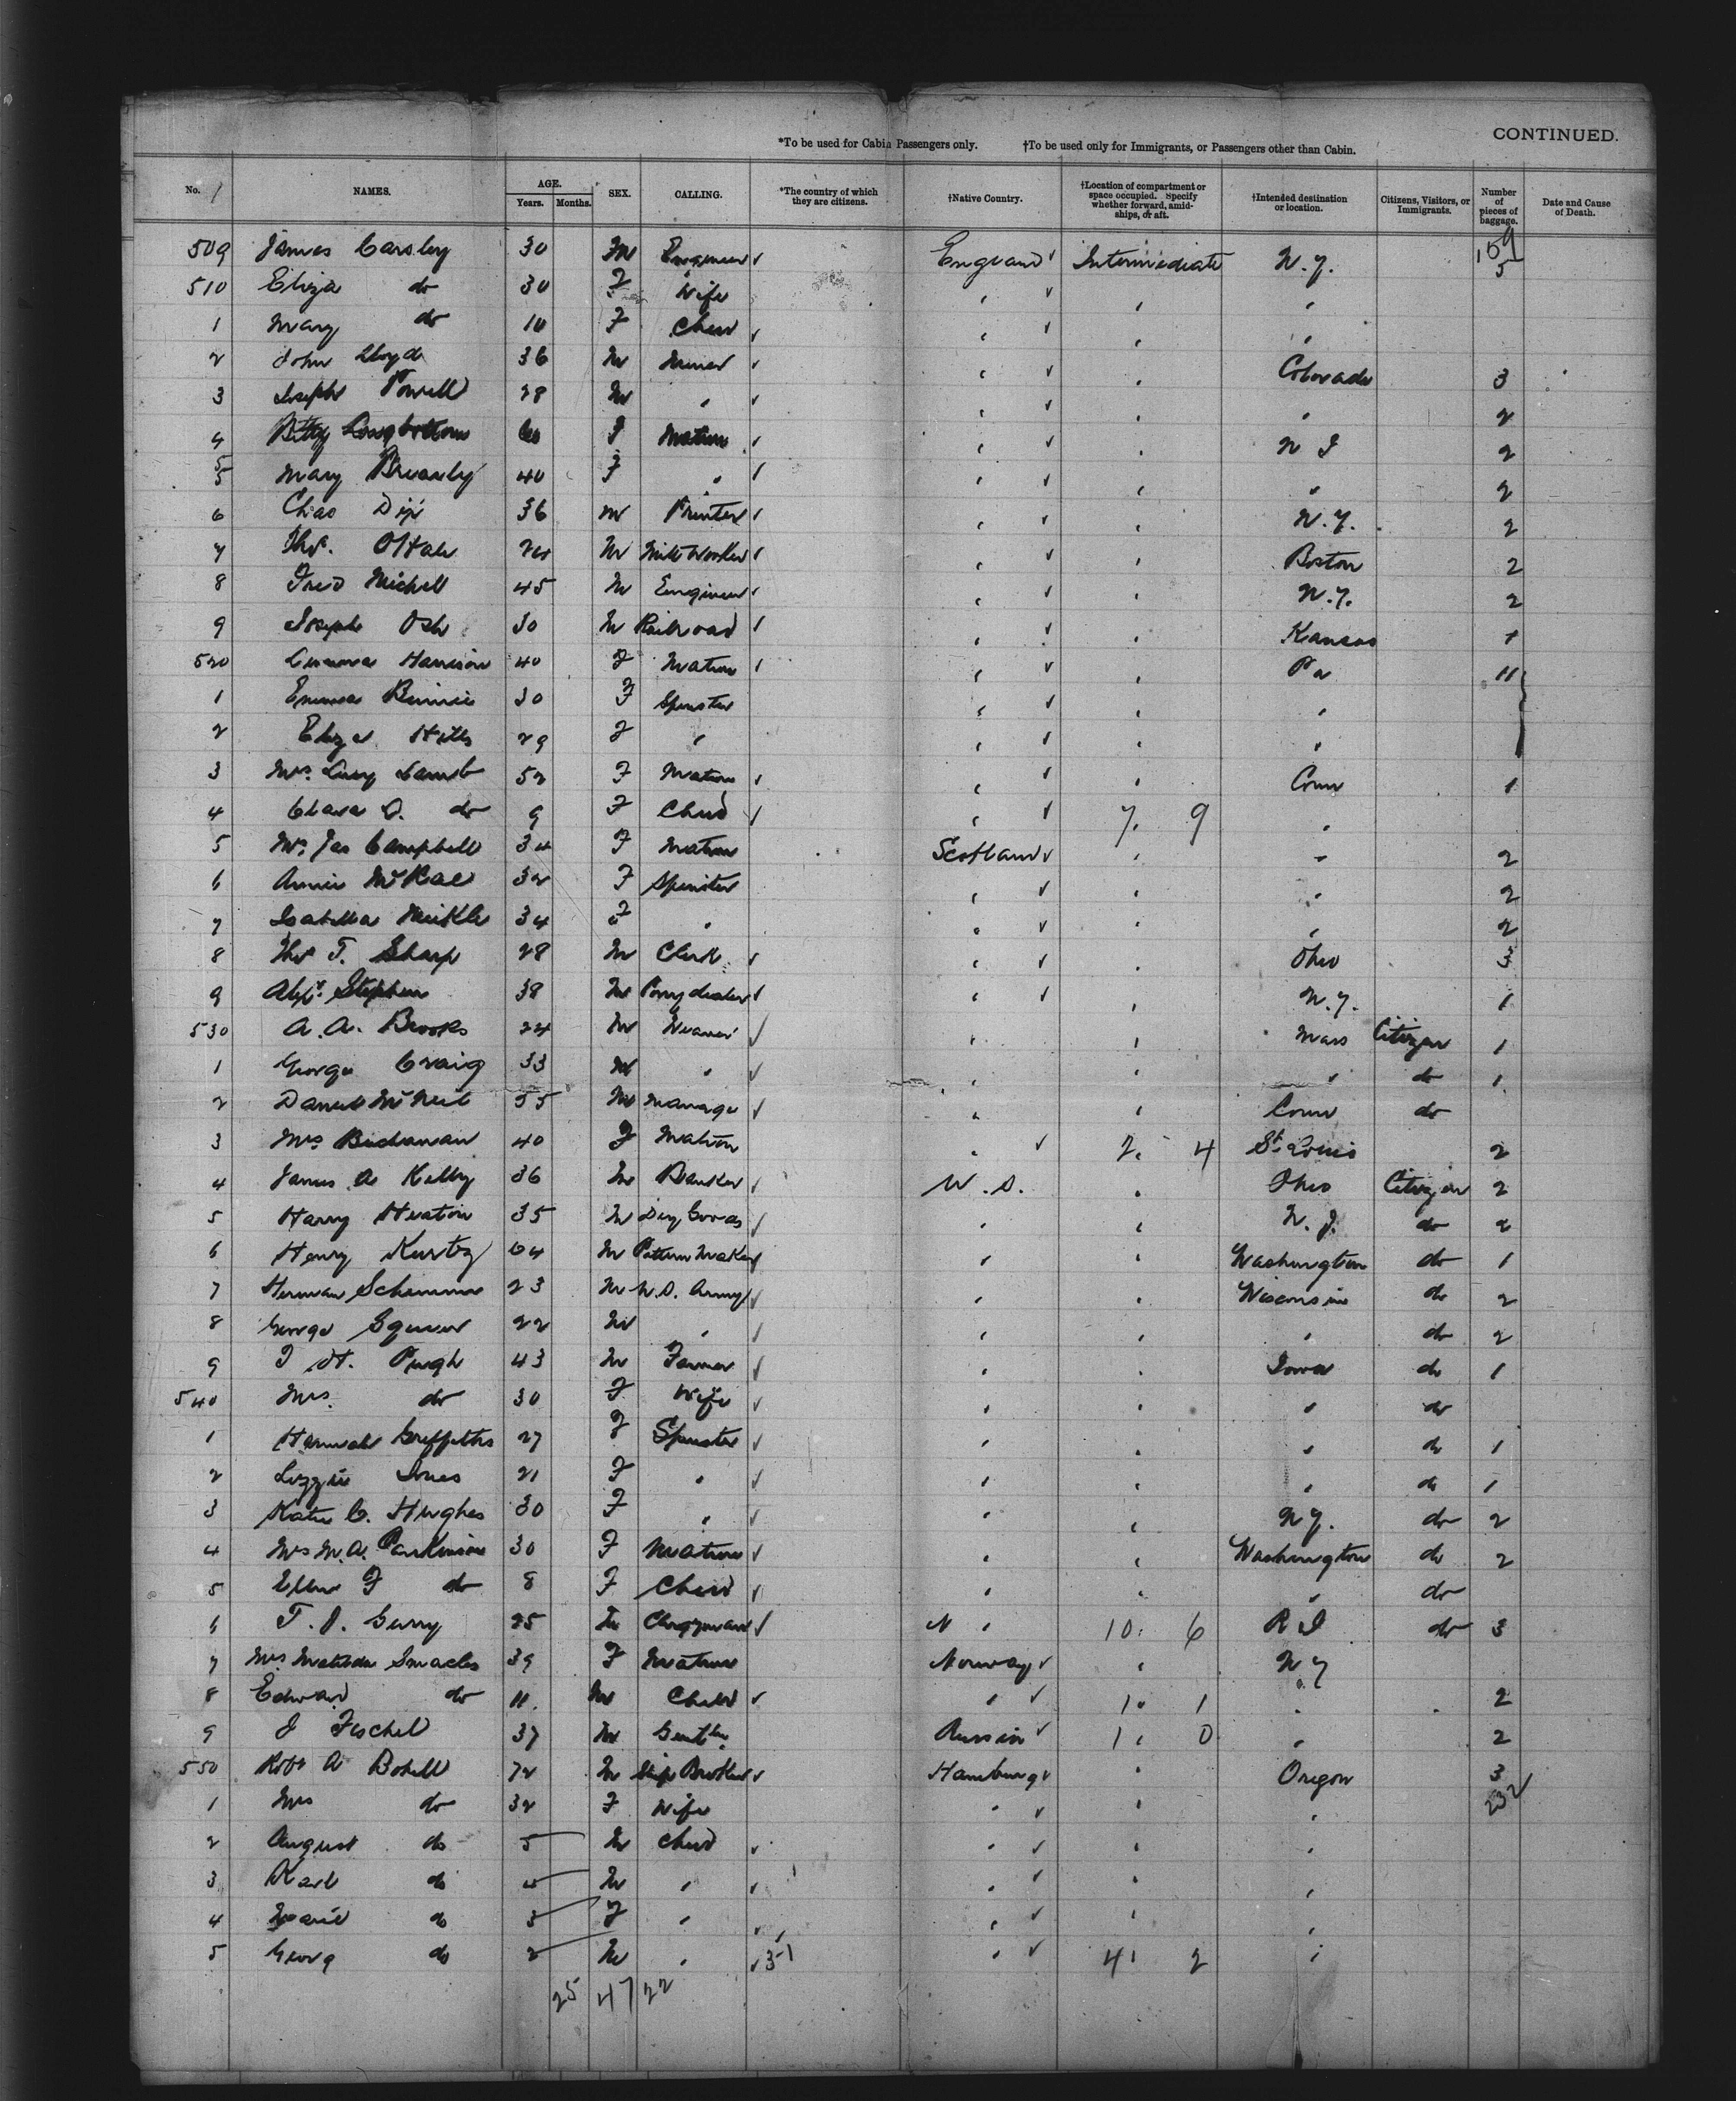 CONTINUED.
*To be used for Cabin Passengers only. †To be used only for Immigrants, or Passengers other than Cabin.
No. 1 NAMES. AGE. Years. Months. SEX. CALLING. *The country of which they are citizens. †Native Country. †Location of compartment or space occupied. Specify whether forward, amidships, or aft. †Intended destination or location. Citizens, Visitors, or Immigrants. Number of pieces of baggage. Date and Cause of Death.
159
509 James Carsley 30 M Engineer England Intermediate N.Y. 5
510 Eliza do 30 F Wife " " "
1 Mary do 10 F Child " " "
2 John Lloyd 36 M Miner " " Colorado 3
3 Joseph Powell 28 M " " " " 2
4 Betty Longbottom 60 F Matron " " N J 2
5 Mary Brearly 40 F " " " " 2
6 Chas Dix 36 M Printer " " N.Y. 2
7 Thos. 24 M Mill Worker " " Boston 2
8 Fred Michell 45 M Engineer " " N.Y. 2
9 Joseph 30 M Railroad " " Kansas 1
520 Harrison 40 F Matron " " Pa 11
1 Emma Binnie 30 F Spinster " " "
2 Eliza Hills 29 F " " " "
3 Mrs. Lucy Lamb 52 F Matron " " Conn 1
4 Clara O. do 9 F Child " 7. 9 "
5 Mrs Jas Campbell 34 F Matron Scotland " " 2
6 Annie McRae 32 F Spinster " " " 2
7 Isabella Meikle 34 F " " " " 2
8 Thos T. Sharp 28 M Clerk " " Ohio 3
9 Alex. Stephen 38 M Pony dealer " " N.Y. 1
530 A. A. Brooks 24 M Weaver " " Mass Citizen 1
1 George Craig 33 M " " " " do 1
2 Daniel McNeil 55 M Manager " " Conn do
3 Mrs Buchanan 40 F Matron " 2. 4 St. Louis 2
4 James A Kelly 36 M Banker U.S. " Ohio Citizen 2
5 Harry Heaton 35 M Dry Goods " " N.J. do 2
6 Henry Kurtz 64 M Pattern Maker " " Washington do 1
7 Herman 23 M U.S. Army " " Wisconsin do 2
8 George 22 M " " " " do 2
9 T. H. Pugh 43 M Farmer " " Iowa do 1
540 Mrs. do 30 F Wife " " " do
1 Hannah Griffiths 27 F Spinster " " " do 1
2 Lizzie Jones 21 F " " " " do 1
3 Katie C. Hughes 30 F " " " N.Y. do 2
4 Mrs M.A. Parkinson 30 F Matron " " Washington do 2
5 Ellen F do 8 F Child " " " do
6 T. J. 25 M Clergyman " 10. 6 R I do 3
7 Mrs Matilda 39 F Matron Norway " N Y
8 Edward do 11. M Child " 1. 1 " 2
9 J Fischel 37 M Russia 1. 0 " 2
550 Robt A 72 M Ship Broker Hamburg " Oregon 3
1 Mrs do 32 F Wife " " " 232
2 August do 5 M Child " " "
3 Karl do 4 M " " " "
4 Marie do 3 F " " " "
5 Georg do 2 M " 31 " 41 2 "
25 47 22